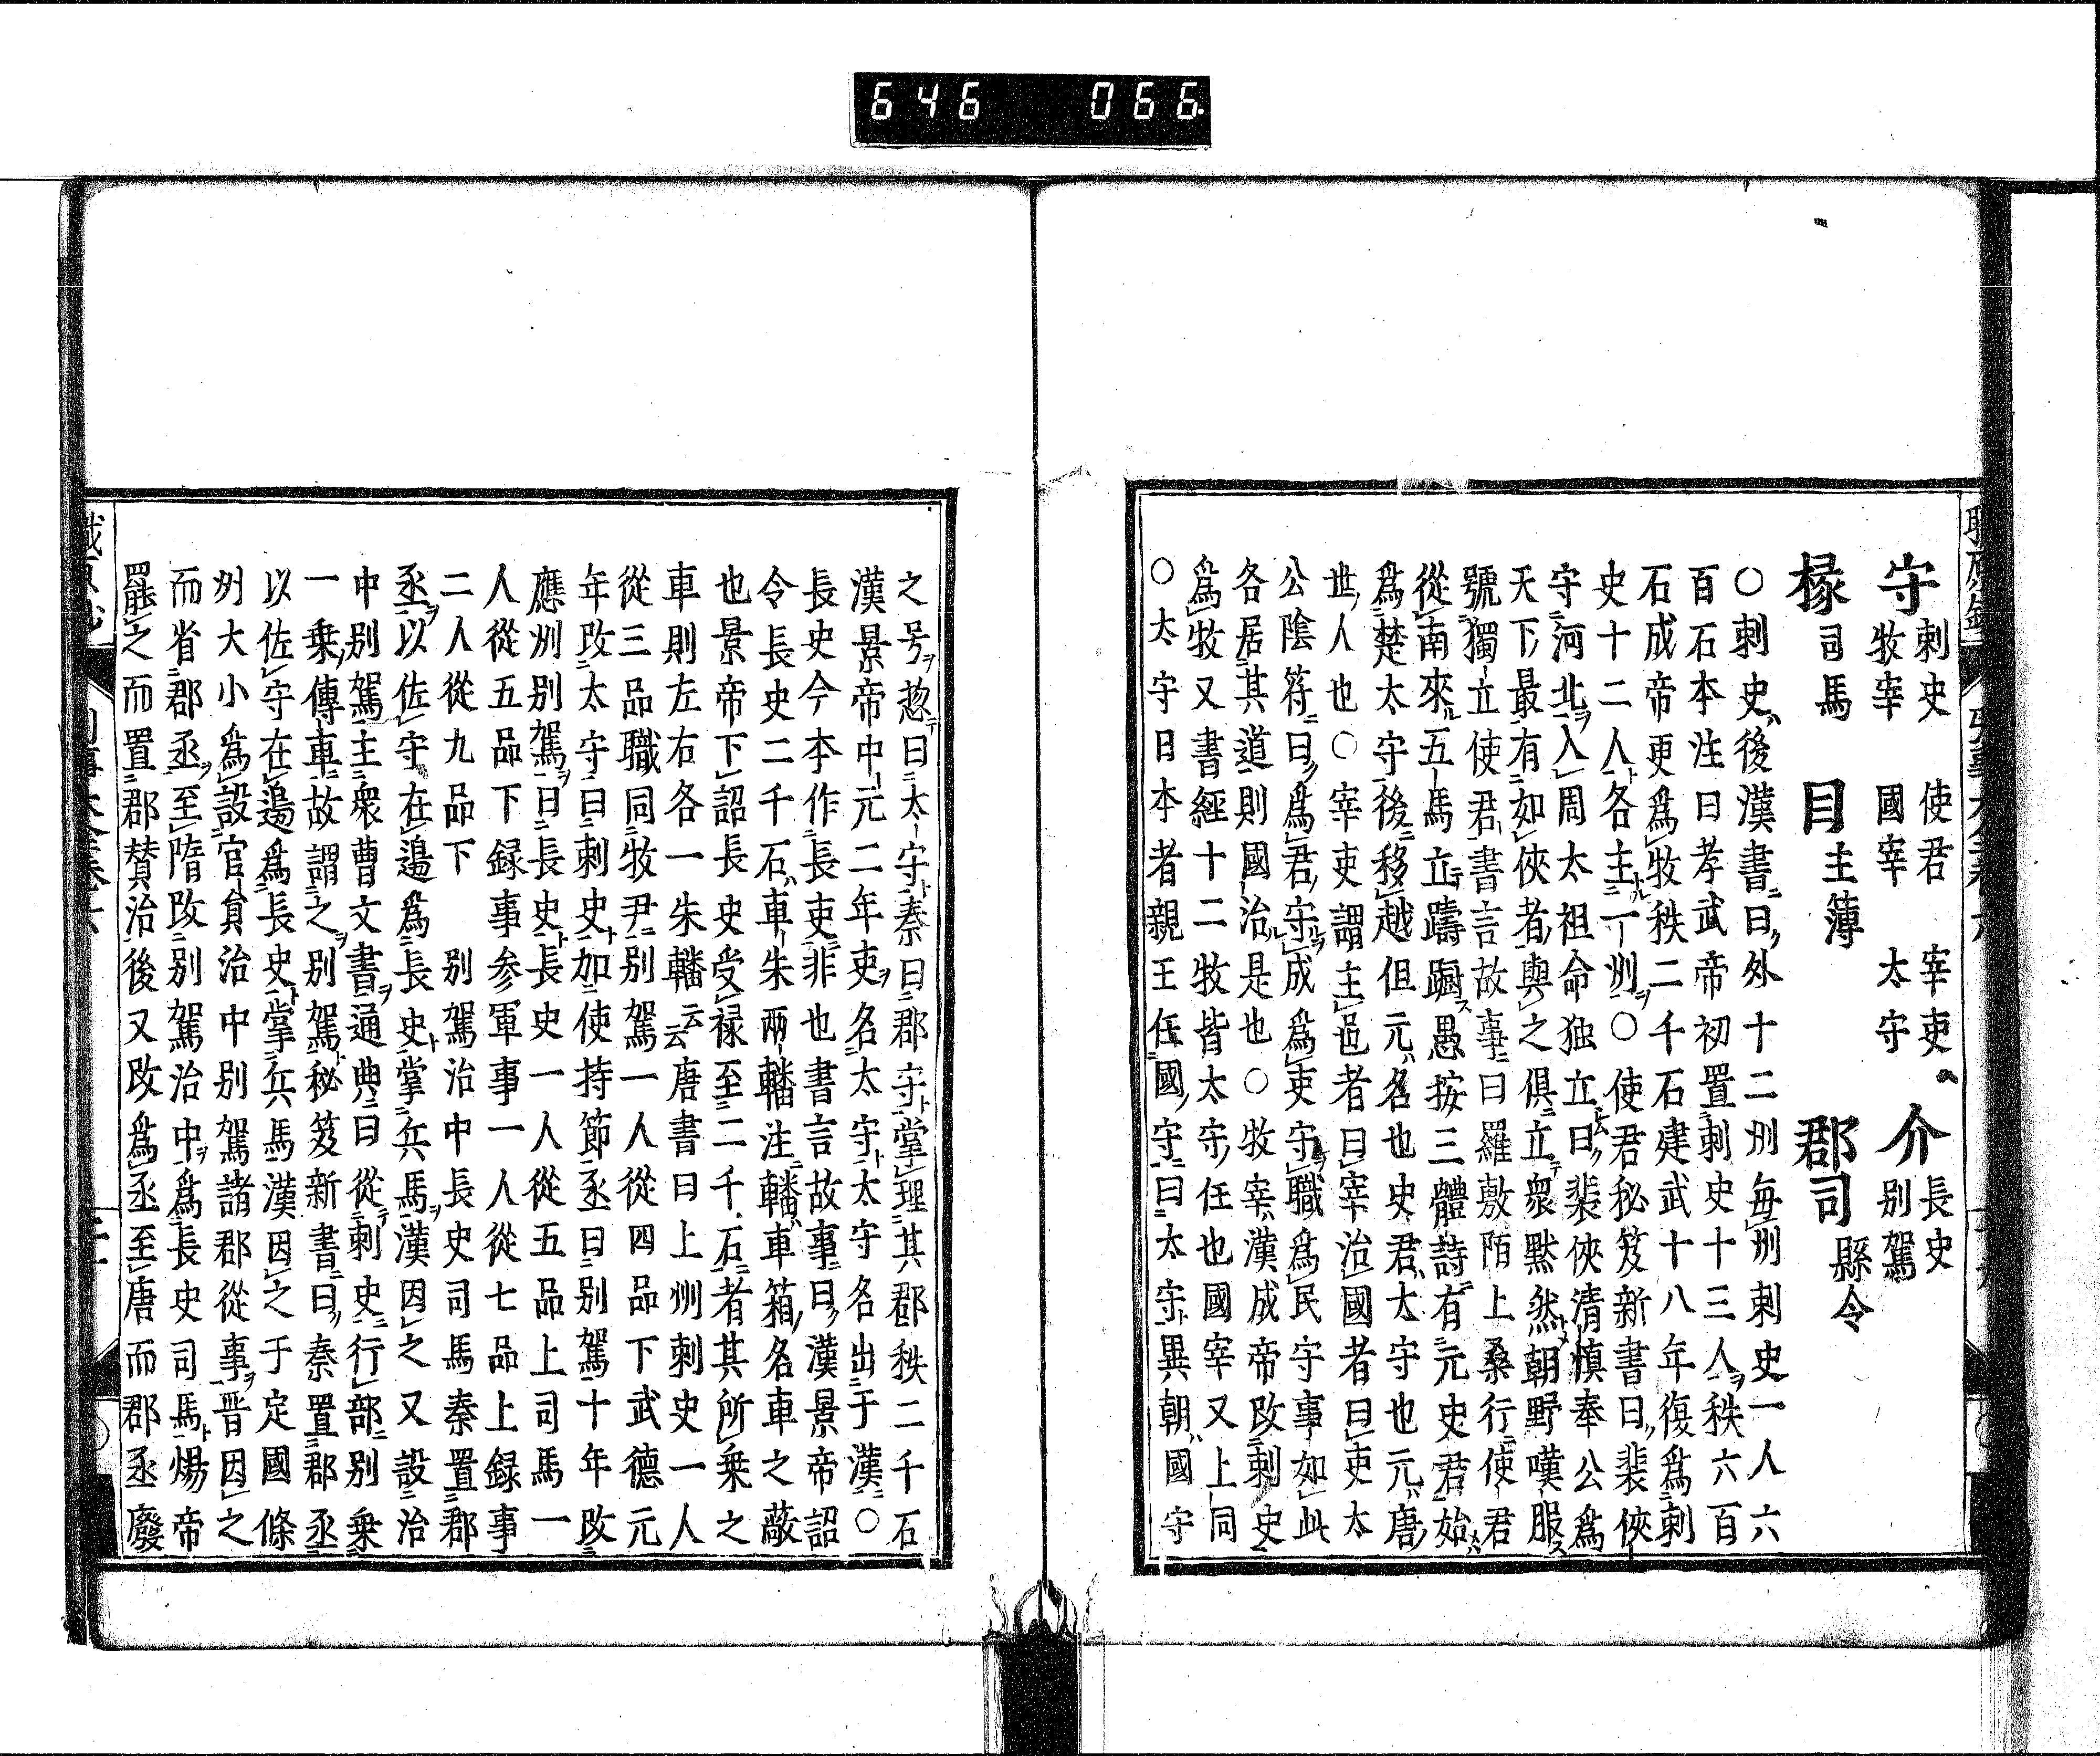 646 066
守 刺史 使君 宰吏
牧宰 國宰 太守
介 長史
別駕
掾 司馬 目 主薄 郡司 縣令
○刺史ハ後漢書ニ曰外十二州毎州刺史一人六
百石本注曰孝武帝初置刺史十三人秩六百
石成帝更爲牧秩二千石建武十八年復爲刺
史十二人各主一州○使君秘笈新書曰裴俠
守河北入周太祖命独立曰裴俠清慎奉公爲
天下最有如俠者與之俱立衆黙然朝野嘆服
號獨立使君書言故事曰羅敷陌上桑行使君
從南來五馬立躊蹰愚按三體詩有元史君始
爲楚太守後移越但元名也史君太守也元唐
世人也○宰吏謂主邑者曰宰治國者曰吏太
公陰符曰爲君守成爲吏守職爲民守事如此
各居其道則國治是也○牧宰漢成帝改刺史
爲牧又書經十二牧皆太守任也國宰又上同
○太守日本者親王任國守曰太守異朝國守
之号惣曰太守秦曰郡守掌理其郡秩二千石
漢景帝中元二年吏名太守太守名出于漢○
長史今本作長吏非也書言故事曰漢景帝詔
令長史二千石車朱兩轓注轓車箱名車之蔽
也景帝下詔長史受禄至二千石者其所乗之
車則左右各一朱轓云云唐書曰上州刺史一人
從三品職同牧尹別駕一人從四品下武德元
年改太守曰刺史加使持節丞曰別駕十年改
應州別駕曰長史長史一人從五品上司馬一
人從五品下録事参軍事一人從七品上録事
二人從九品下 別駕治中長史司馬秦置郡
丞以佐守在邉爲長史掌兵馬漢因之又設治
中別駕主衆曹文書通典曰從刺史行部別乗
一乗傳車故謂之別駕秘笈新書曰秦置郡丞
以佐守在邉爲長史掌兵馬漢因之于定國條
州大小爲設官貟治中別駕諸郡從事晋因之
而省郡丞至隋改別駕治中爲長史司馬煬帝
罷之而置郡賛治後又改爲丞至唐而郡丞廢